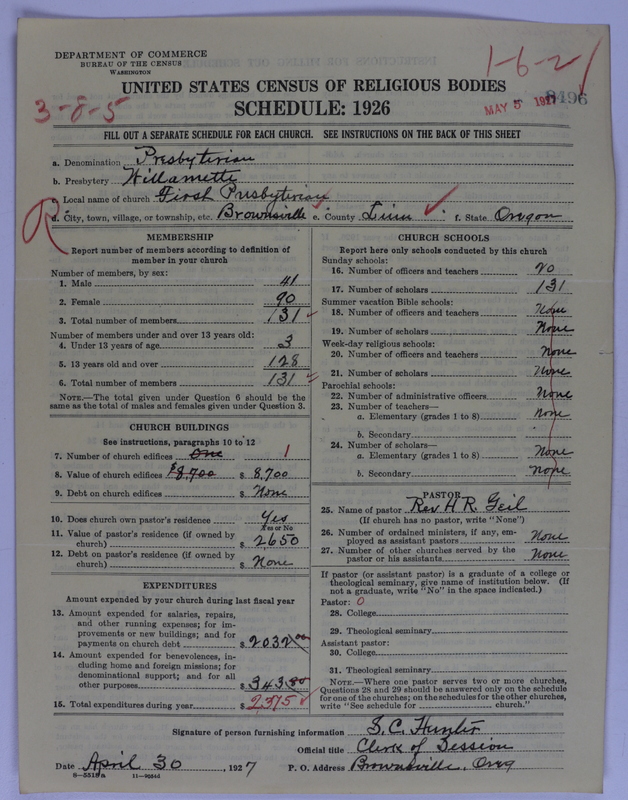 DEPARTMENT OF COMMERCE
BUREAU OF THE CENSUS
WASHINGTON
1-6-21
3-8-5
UNITED STATES CENSUS OF RELIGIOUS BODIES
SCHEDULE: 1926
MAY 5 1927
8496
FILL OUT A SEPARATE SCHEDULE FOR EACH CHURCH. SEE INSTRUCTIONS ON THE BACK OF THIS SHEET
a. Denomination Presbyterian
b. Presbytery Willamette
c. Local name of church First Presbyterian
d. City, town, village, or township, etc. Brownsville e. County Linn f. State Oregon
MEMBERSHIP
Report number of members according to definition of
member in your church
Number of members, by sex:
1. Male 41
2. Female 90
3. Total number of members 131
Number of members under and over 13 years old:
4. Under 13 years of age 3
5. 13 years old and over 128
6. Total number of members 131
NOTE.—The total given under Question 6 should be
same as the total of males and females given under Question 3.
CHURCH BUILDINGS
See instructions, paragraphs 10 to 12
7. Number of church edifices One 1
8. Value of church edifices $8,700 $ 8,700
9. Debt on church edifices $ None
10. Does church own pastor's residence Yes
Yes or No
11. Value of pastor's residence (if owned by
church) $ 2650
12. Debt on pastor's residence (if owned by
church) $ None
EXPENDITURES
Amount expended by your church during last fiscal year
13. Amount expended for salaries, repairs,
and other running expenses; for im-
provements or new buildings; and for
payments on church debt $ 2032 00
14. Amount expended for benevolences, in-
cluding home and foreign missions; for
denominational support; and for all
other purposes $ 343 80
15. Total expenditures during year $ 2,375
CHURCH SCHOOLS
Report here only schools conducted by this church
Sunday schools:
16. Number of officers and teachers 20
17. Number of scholars 131
Summer vacation Bible schools:
18. Number of officers and teachers None
19. Number of scholars None
Week-day religious schools:
20. Number of officers and teachers None
21. Number of scholars None
Parochial schools:
22. Number of administrative officers None
23. Number of teachers—
a. Elementary (grades 1 to 8) None
b. Secondary
24. Number of scholars—
a. Elementary (grades 1 to 8) None
b. Secondary None
PASTOR
25. Name of pastor Rev. H. R. Geil
(If church has no pastor, write "None")
26. Number of ordained ministers, if any, em-
ployed as assistant pastors None
27. Number of other churches served by the
pastor or his assistants None
If pastor (or assistant pastor) is a graduate of a college or
theological seminary, give name of institution below. (If
not a graduate, write "No" in the space indicated.)
Pastor: 0
28. College
29. Theological seminary
Assistant pastor:
30. College
31. Theological seminary
NOTE.—Where one pastor serves two or more churches,
Questions 28 and 29 should be answered only on the schedule
for one of the churches; on the schedules for the other churches,
write "See schedule for church."
Signature of person furnishing information S. C. Hunter
Official title Clerk of Session
Date April 30, 1927 P. O. Address Brownsville, Oreg
8—5518a 11—9054d